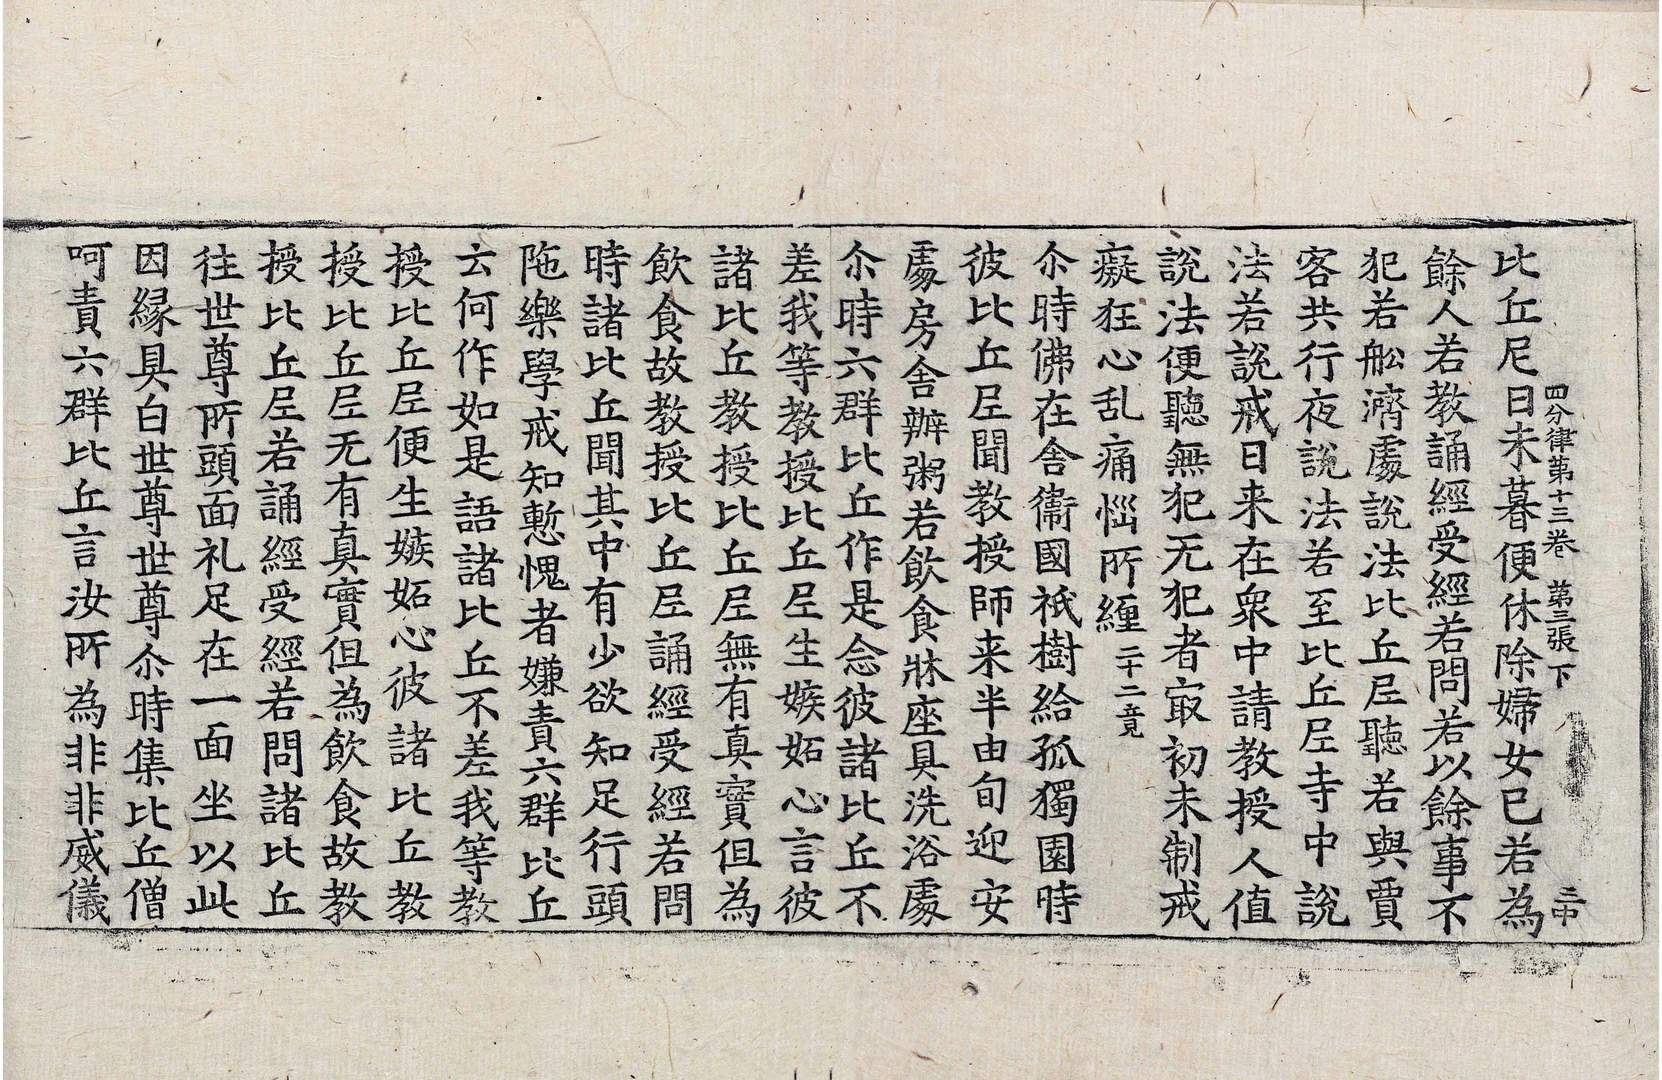 四分律第十三卷　第三張　下　三中
比丘尼日未暮便休除婦女已若為
餘人若教誦經受經若問若以餘事不
犯若舩濟處說法比丘𡰱聽若與賈
客共行夜說法若至比丘𡰱寺中說
法若說戒日来在衆中請教授人值
說法便聽無犯无犯者㝡初未制戒
癡狂心乱痛惱所纏二十二竟
尒時佛在舍衞國祇樹給孤獨園時
彼比丘𡰱聞教授師来半由旬迎安
處房舍辦粥若飲食牀座具洗浴處
尒時六群比丘作是念彼諸比丘不
差我等教授比丘𡰱生嫉妬心言彼
諸比丘教授比丘𡰱無有真實但為
飲食故教授比丘𡰱誦經受經若問
時諸比丘聞其中有少欲知足行頭
陁樂學戒知慙愧者嫌責六群比丘
云何作如是語諸比丘不差我等教
授比丘𡰱便生嫉妬心彼諸比丘教
授比丘𡰱无有真實但為飲食故教
授比丘𡰱若誦經受經若問諸比丘
往世尊所頭面礼足在一面坐以此
因縁具白世尊世尊尒時集比丘僧
呵責六群比丘言汝所為非非威儀